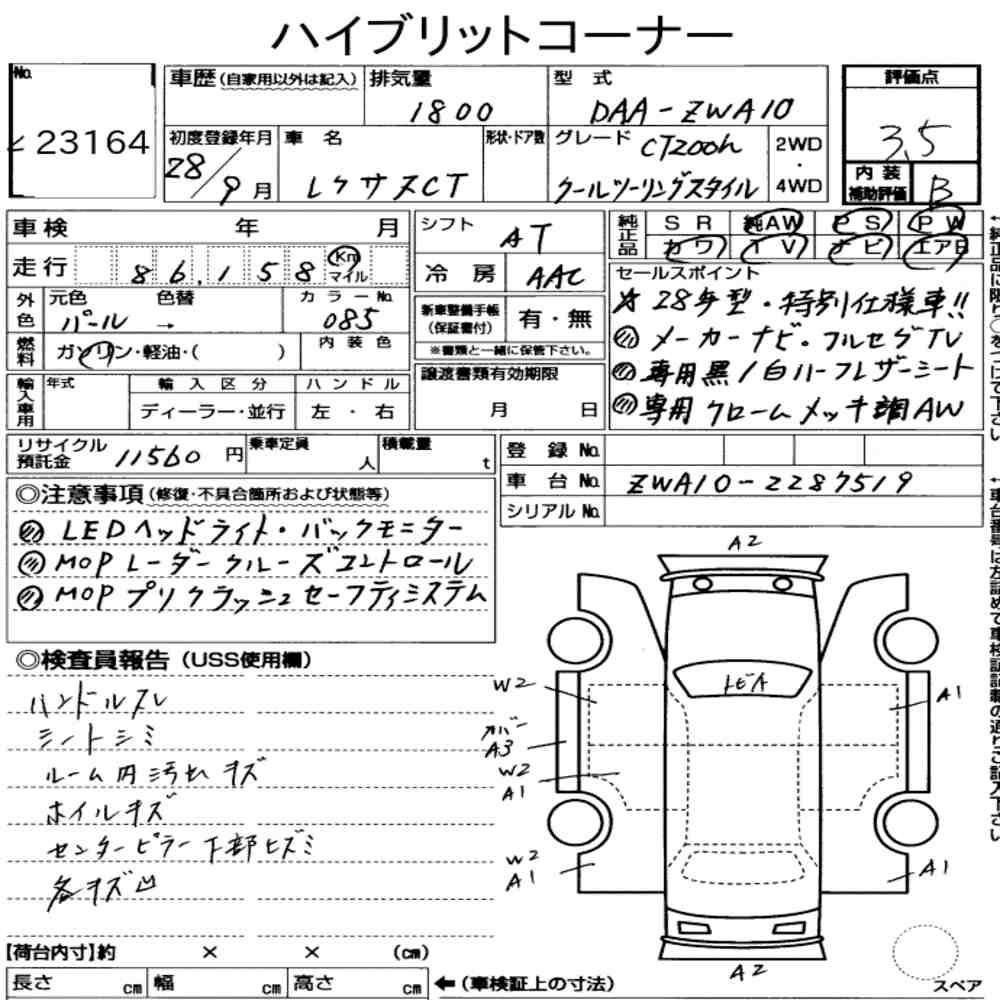 ハイブリットコーナー
No.
23164
車歴(自家用以外は記入)
排気量
1800
型 式
DAA-ZWA10
評価点
3.5
初度登録年月
28/9月
車 名
レクサスCT
形状・ドア数
グレード CT200h
クールツーリングスタイル
2WD
・
4WD
内 装
補助評価
B
車検 年 月
シフト
AT
純正品
SR 純AW PS PW
カワ TV ナビ エアB
走行 86,158 Km
マイル
冷 房 AAC
セールスポイント
☆ 28年型・特別仕様車!!
メーカーナビ・フルセグTV
専用黒/白ハーフレザーシート
専用クロームメッキ調AW
外色
元色 色替 カラーNo.
パール → 085
新車整備手帳
(保証書付)
有・無
※書類と一緒に保管下さい。
燃料
ガソリン・軽油・( )
内装色
輸入車用
年式
輸入区分
ハンドル
ディーラー・並行
左 ・ 右
譲渡書類有効期限
月 日
リサイクル
預託金
11560 円
乗車定員
人
積載量
t
登 録 No.
車 台 No. ZWA10-2287519
シリアルNo.
◎注意事項(修復・不具合箇所および状態等)
LEDヘッドライト・バックモニター
MOPレーダークルーズコントロール
MOPプリクラッシュセーフティシステム
◎検査員報告(USS使用欄)
ハンドルスレ
シートシミ
ルーム内汚れキズ
ホイルキズ
センターピラー下部ヒズミ
各キズ凹
A2
W2
トビA
A1
カバー
A3
W2
A1
W2
A1
A1
A2
スペア
【荷台内寸】約 × × (cm)
長さ cm 幅 cm 高さ cm
←(車検証上の寸法)
↑純正品に限り○をつけて下さい
↑車台番号は左詰めで車検証記載の通りご記入下さい